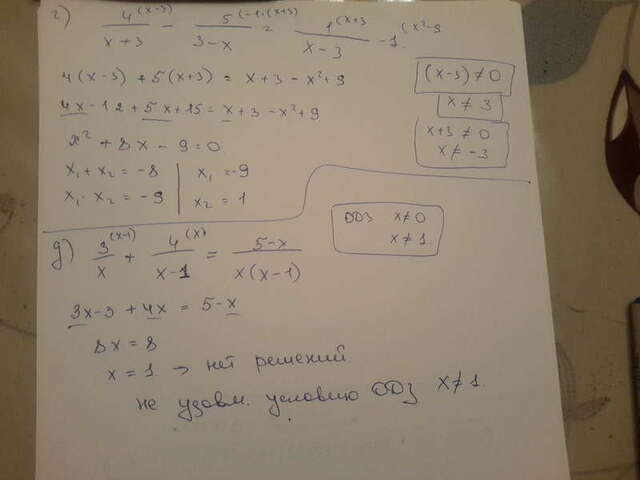 г) 4^(x-3)/(x+3) - 5^(-1·(x+3)/(3-x) = 1^(x+3/(x-3) - 1^(x²-9
4(x-3) + 5(x+3) = x+3-x²+9
(x-3) ≠ 0
x ≠ 3
4x-12+5x+15 = x+3-x²+9
x+3 ≠ 0
x ≠ -3
x² + 8x - 9 = 0
x₁ + x₂ = -8 | x₁ = -9
x₁ · x₂ = -9 | x₂ = 1
ОДЗ x≠0
x≠1
д) 3^(x-1)/x + 4^(x)/(x-1) = (5-x)/(x(x-1))
3x-3 + 4x = 5-x
8x = 8
x = 1 → нет решений
не удовл. условию ОДЗ x≠1